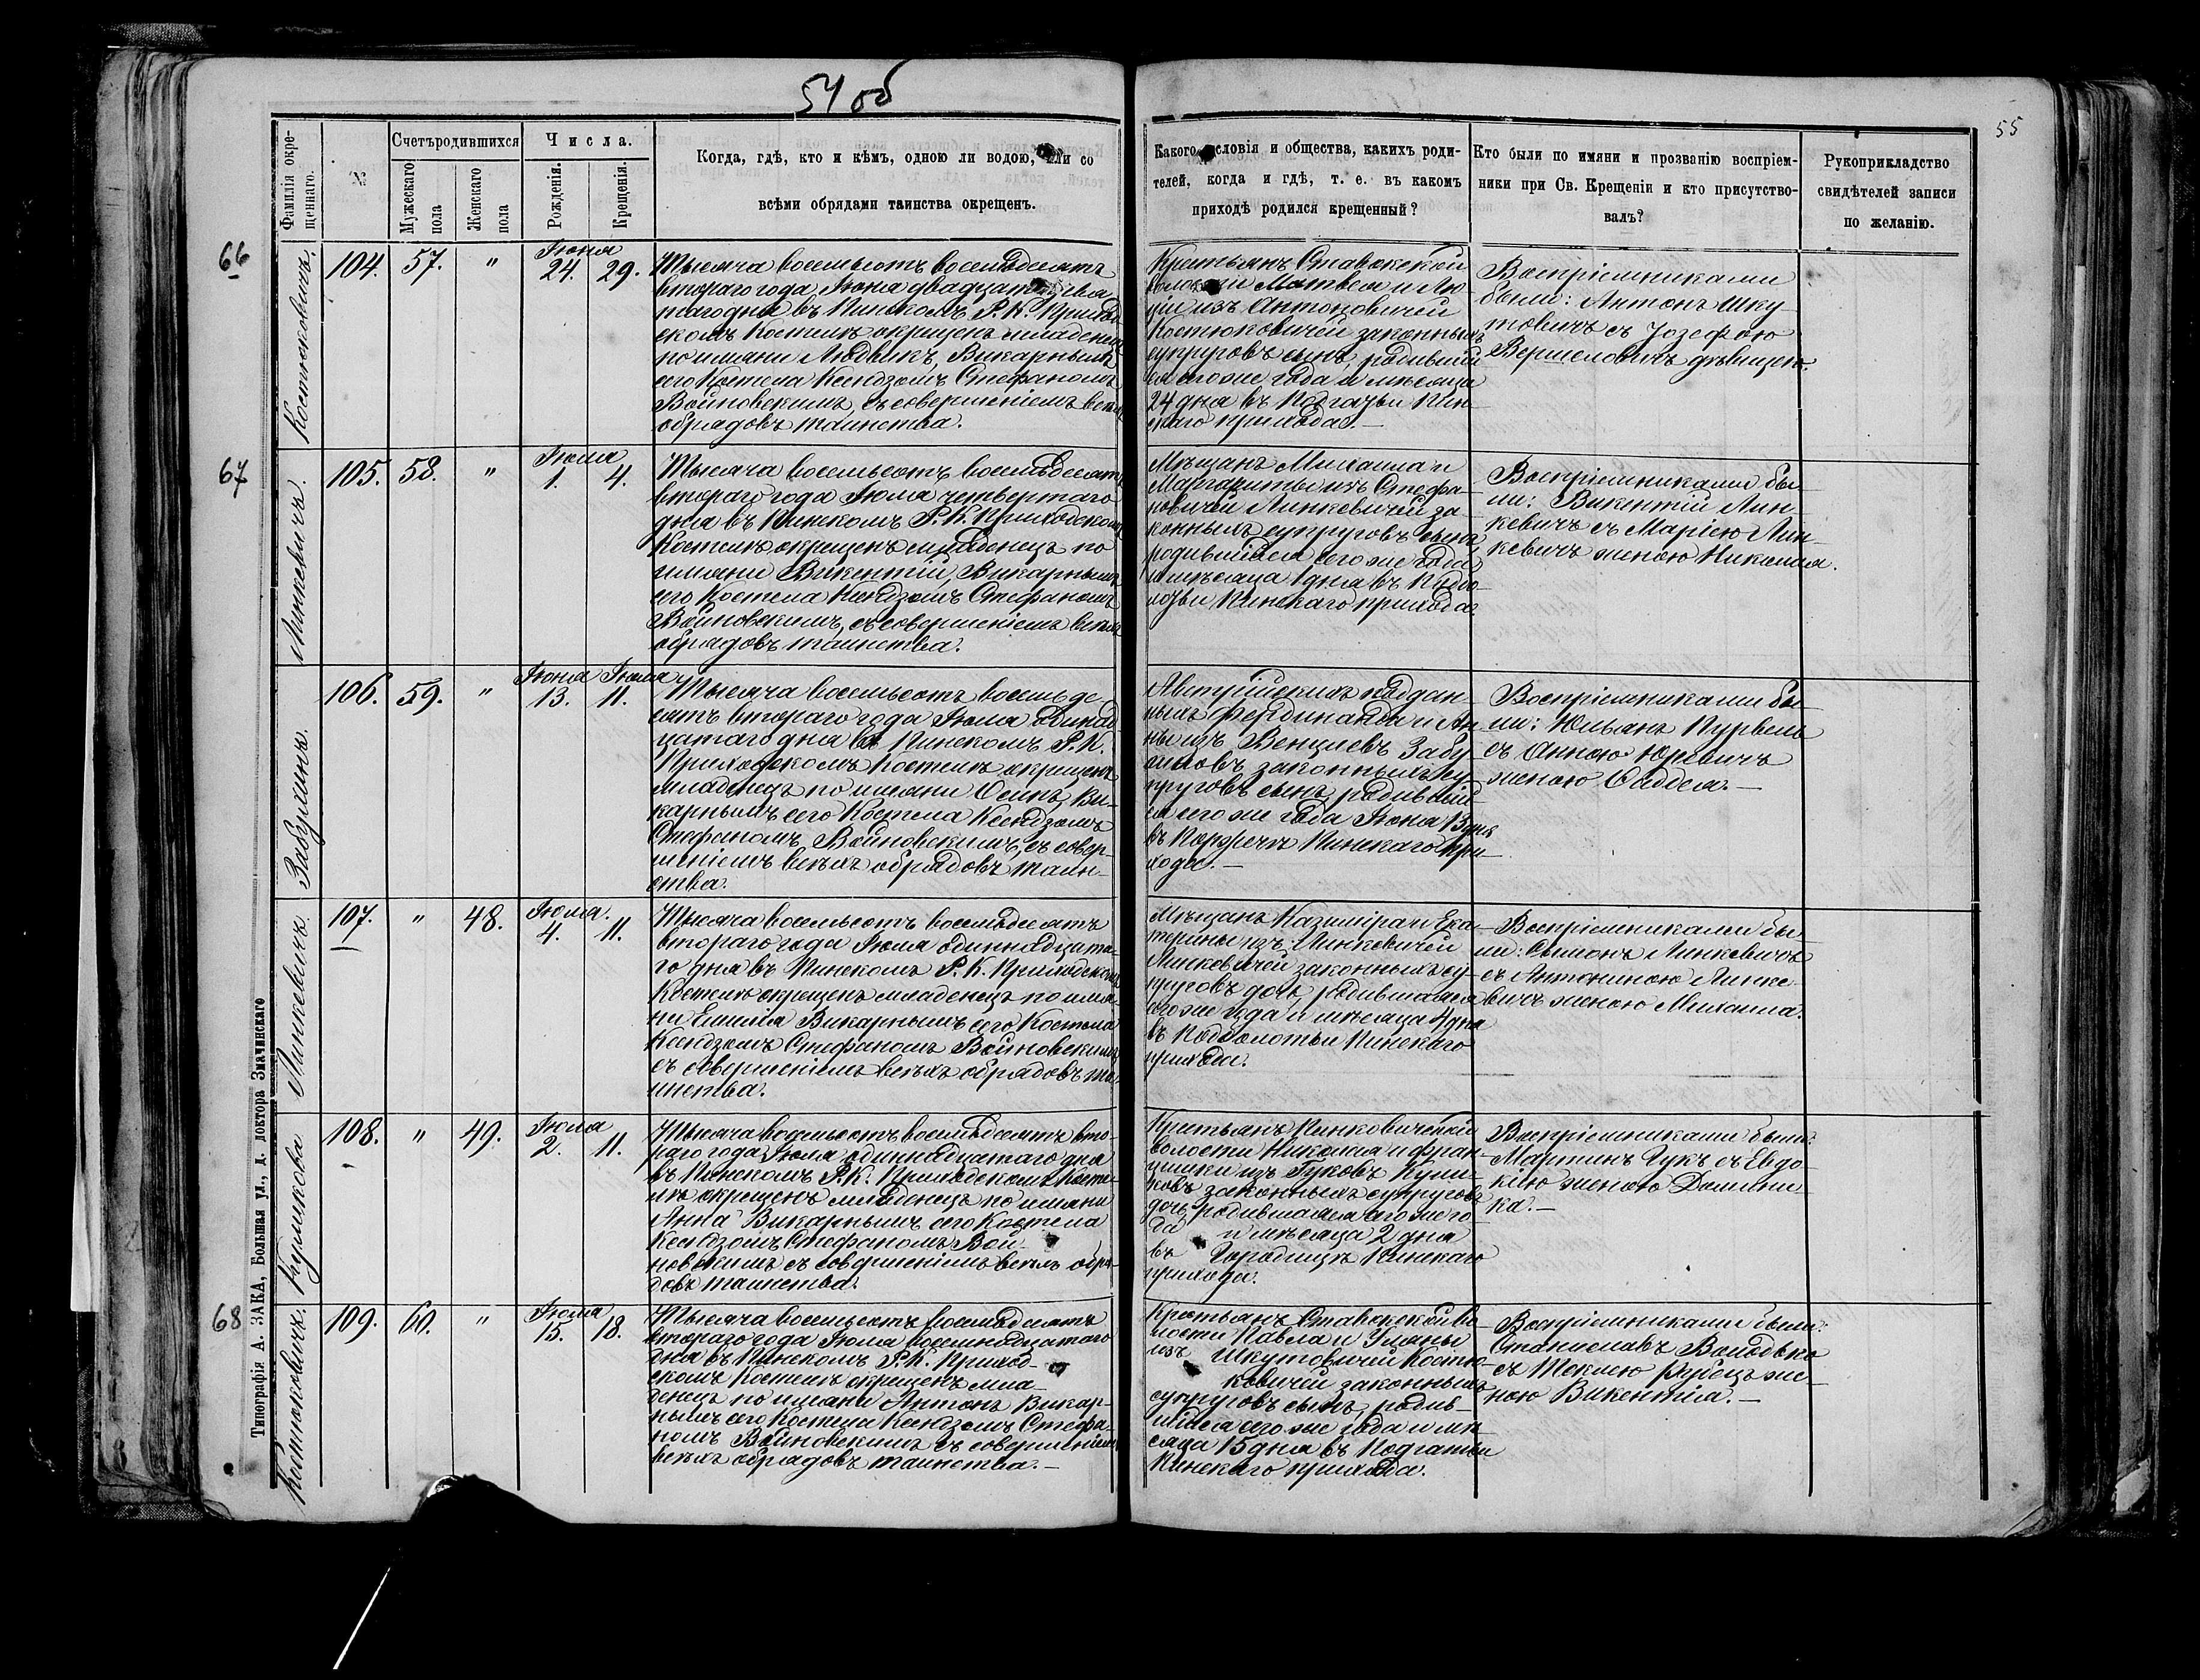 54 об
55
Фамилія окре-
щеннаго.
№
Счетъ родившихся
Мужескаго
пола
Женскаго
пола
Числа.
Рожденія.
Крещенія.
Когда, гдѣ, кто и кѣмъ, одною ли водою, или со
всѣми обрядами таинства окрещенъ.
Какого сословія и общества, какихъ роди-
телей, когда и гдѣ, т. е. въ какомъ
приходѣ родился крещенный?
Кто были по имяни и прозванію воспріем-
ники при Св. Крещеніи и кто присутство-
валъ?
Рукоприкладство
свидѣтелей записи
по желанію.
66
Костюковичъ.
104.
57.
"
Іюня
24. 29.
Тысяча восемьсотъ восемьдесятъ
втораго года Іюня двадцать девя
таго дня въ Пинскомъ Р. К. Приход-
скомъ Костелѣ окрещенъ младенецъ
по имяни Людвикъ, Викарнымъ
сего Костела Ксендзомъ Стефаномъ
Войновскимъ, съ совершеніемъ всѣхъ
обрядовъ таинства.
Крестьянъ Ставокской
волости Матвея и Лю-
ціи изъ Антоновичей
Костюковичей законныхъ
супруговъ сынъ, родившій
ся сего же года и мѣсяца
24 дня въ Подгатьи Пин-
скаго прихода.—
Воспріемниками
были: Антонъ Шку-
товичъ съ Іозефою
Вершеловичъ дѣвицею.
67
Линкевичъ.
105.
58.
"
Іюля
1. 4.
Тысяча восемьсотъ восемьдесятъ
втораго года Іюля четвертаго
дня въ Пинскомъ Р. К. Приходскомъ
Костелѣ окрещенъ младенецъ по
имяни Викентій, Викарнымъ
сего Костела Ксендзомъ Стефаномъ
Войновскимъ, съ совершеніемъ всѣхъ
обрядовъ таинства.
Мѣщанъ Михаила и
Маргариты изъ Стефа-
новичей Линкевичей за-
конныхъ супруговъ сынъ,
родившійся сего же года
и мѣсяца 1 дня въ
Пинскаго прихода.
Воспріемниками бы-
ли: Викентій Лин-
кевичъ съ Маріею Лин-
кевичъ женою Николая.
Забулинъ.
106.
59.
"
Іюня Іюля
13. 11.
Тысяча восемьсотъ восемьде-
сятъ втораго года Іюля одинад
цатаго дня въ Пинскомъ Р. К.
Приходскомъ Костелѣ окрещенъ
младенецъ по имяни Осипъ, Ви-
карнымъ сего Костела Ксендзомъ
Стефаномъ Войновскимъ, съ совер-
шеніемъ всѣхъ обрядовъ таин-
ства.
Австрійскихъ поддан-
ныхъ Фердинанда и Ан-
ны изъ Венциевъ Забу-
линовъ законныхъ су-
пруговъ сынъ, родившій-
ся сего же года Іюня 13 дня
въ Порѣчьи Пинскаго при-
хода.—
Воспріемниками бы-
ли: Юльянъ Курвель
съ Анною Юревичъ
женою Фаддея.—
Линкевичъ.
107.
"
48.
Іюля.
4. 11.
Тысяча восемьсотъ восемьдесятъ
втораго года Іюля одиннадцата-
го дня въ Пинскомъ Р. К. Приходскомъ
Костелѣ окрещенъ младенецъ по имя-
ни Емилія Викарнымъ сего Костела
Ксендзомъ Стефаномъ Войновскимъ,
съ совершеніемъ всѣхъ обрядовъ та-
инства.
Мѣщанъ Казиміра и Ека-
терины изъ Линкевичей
Линкевичей законныхъ су-
пруговъ дочь, родившаяся
сего же года и мѣсяца 4 дня
въ Подболотьи Пинскаго
прихода.
Воспріемниками бы-
ли: Сымонъ Линкевичъ
съ Антониною Линке-
вичъ женою Михаила.
Куликова
108.
"
49.
Іюля
2. 11.
Тысяча восемьсотъ восемьдесятъ вто-
раго года Іюля одиннадцатаго дня
въ Пинскомъ Р. К. Приходскомъ Косте-
лѣ окрещенъ младенецъ по имяни
Анна Викарнымъ сего Костела
Ксендзомъ Стефаномъ Вой-
новскимъ съ совершеніемъ всѣхъ обря-
довъ таинства.
Крестьянъ Пинковичской
волости Николая и Фран-
цишки изъ Гуковъ Кули-
ковъ законныхъ супруговъ
дочь, родившаяся сего же го-
да и мѣсяца 2 дня
въ Городищѣ Пинскаго
прихода.
Воспріемниками были:
Мартинъ Гукъ съ Евдо-
кіею женою Домини-
ка.—
68
Костюковичъ.
109.
60.
"
Іюля
15. 18.
Тысяча восемьсотъ восемьдесятъ
втораго года Іюля восемнадцатаго
дня въ Пинскомъ Р. К. Приход-
скомъ Костелѣ окрещенъ мла-
денецъ по имяни Антонъ Викар-
нымъ сего Костела Ксендзомъ Стефа-
номъ Войновскимъ съ совершеніемъ
всѣхъ обрядовъ таинства.—
Крестьянъ Ставокской во-
лости Павла и Уляны
изъ Шкутовичей Костю-
ковичей законныхъ
супруговъ сынъ, родив-
шійся сего же года и мѣ-
сяца 15 дня въ Подгатьи
Пинскаго прихода.
Воспріемниками были:
Станиславъ Володько
съ Теклею Рубецъ же-
ною Викентія.—
Типографія А. ЗАКА, Большая ул., д. доктора Змачинскаго